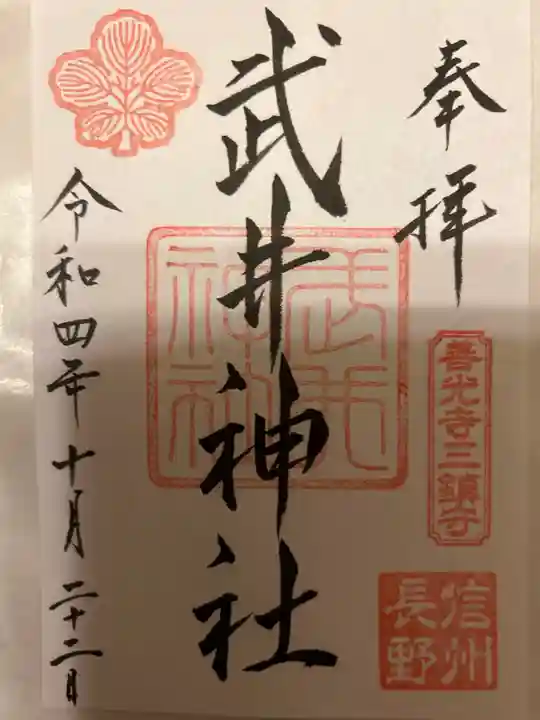 奉拝
善光寺三鎮守
信州
長野
武井神社
武井
神社
令和四年十月二十二日